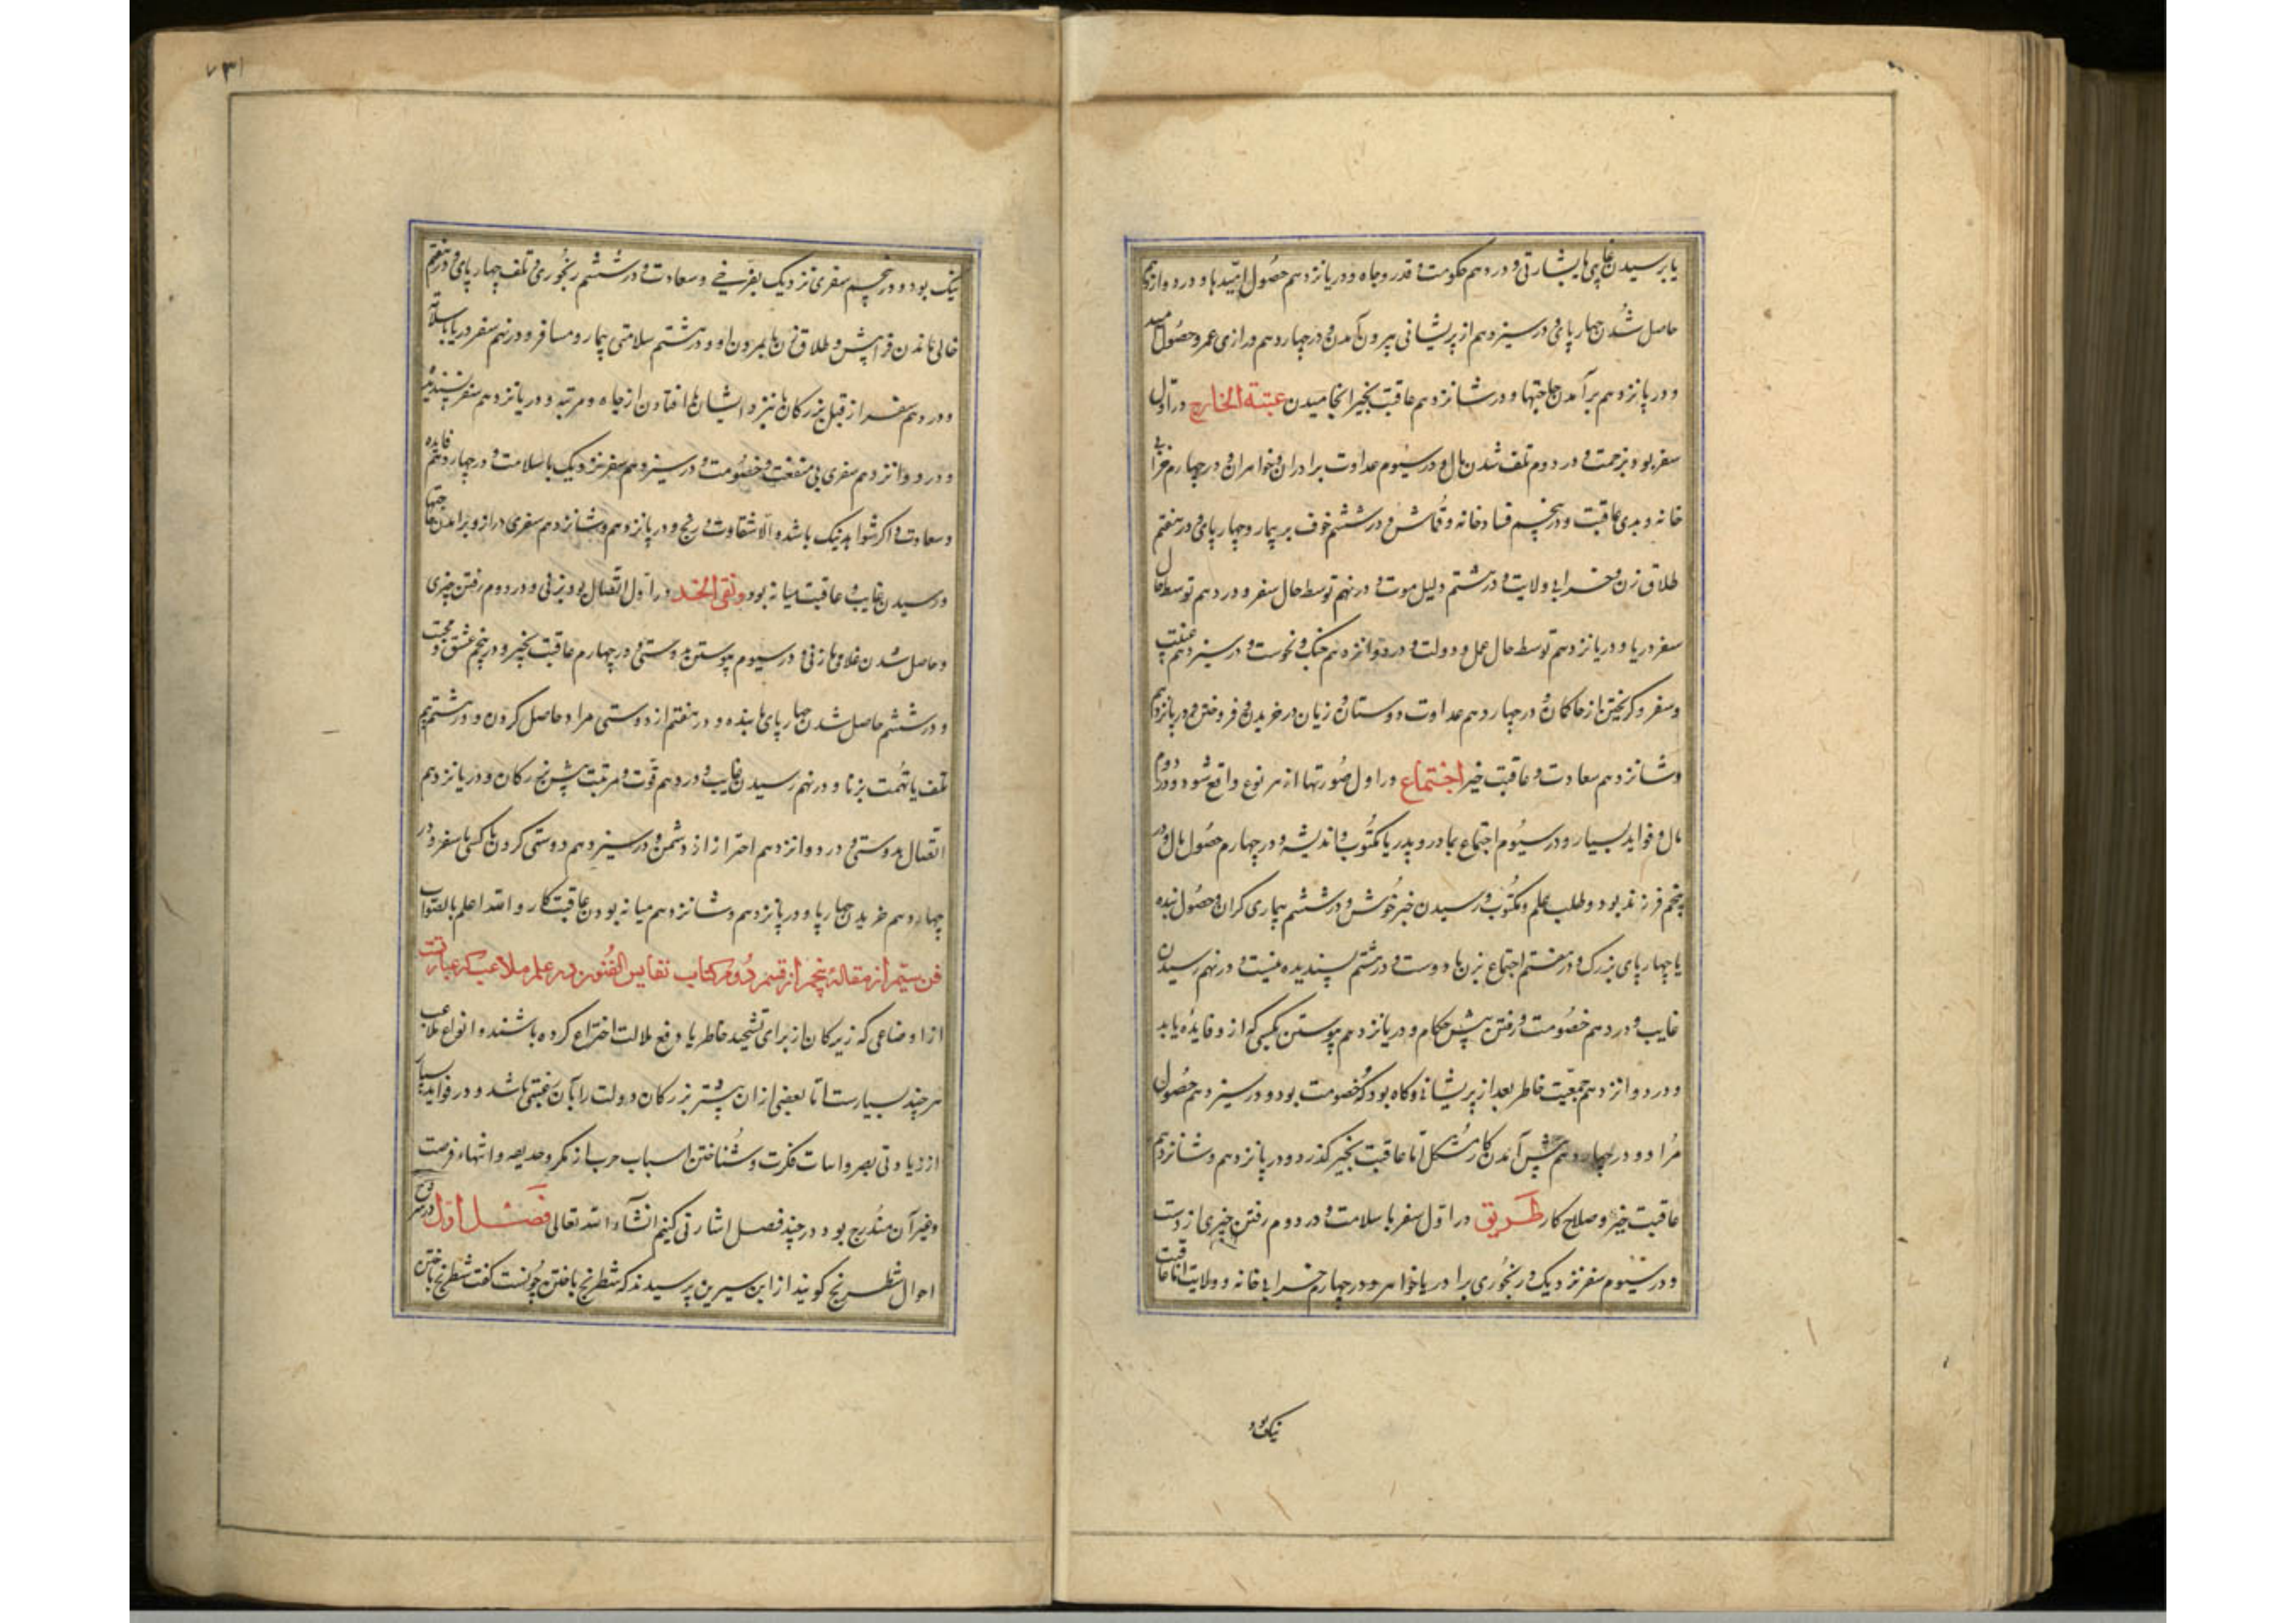 یا برسیدن غایبی یا بشارتی و در دهم حکومت و قدر و جاه و در یازدهم حصول امیدها و در دوازدهم
حاصل شدن چهارپای و در سیزدهم از پریشانی بیرون آمدن و در چهاردهم درازی عمر و حصول امید
و در پانزدهم برآمدن حاجتها و در شانزدهم عاقبت بخیر انجامیدن عتبة الخارج در اول
سفر بود و زحمت و در دوم تلف شدن مال و در سیوم عداوت برادران و خواهران و در چهارم خرابی
خانه و بدی عاقبت و در پنجم فساد خانه و قماش و در ششم خوف بر بیمار و چهارپای و در هفتم
طلاق زن و خرابی ولایت و در هشتم دلیل موت و در نهم توسط حال سفر و در دهم توسط حال
سفر دریا و در یازدهم توسط حال عمل و دولت و در دوازدهم جنک و نحوست و در سیزدهم
و سفر و کریختن از حاکمان و در چهاردهم عداوت دوستان و زیان در خریدن و فروختن و در پانزدهم
و شانزدهم سعادت و عاقبت خیر اجتماع در اول صورتها از هر نوع واقع شود و در دوم
مال و فواید بسیار و در سیوم اجتماع بمادر و پدر یا مکتوب و اندیشه و در چهارم حصول مال و در
پنجم فرزند بود و طلب علم و مکتوب و رسیدن خبر خوش و در ششم بیماری کران و حصول بنده
یا چهارپای بزرک و در هفتم اجتماع بزن یا دوست و در هشتم پسندیده نیست و در نهم رسیدن
غایب و در دهم خصومت و رفتن پیش حکام و در یازدهم پیوستن بکسی که ازو فایده یابد
و در دوازدهم جمعیت خاطر بعد از پریشانی و کاه بود که خصومت بود و در سیزدهم حصول
مراد و در چهاردهم پیش آمدن کار مشکل اما عاقبت بخیر کذرد و در پانزدهم و شانزدهم
عاقبت خیر و صلاح کار طریق در اول سفر با سلامت و در دوم رفتن چیزی از دست
و در سیوم سفر نزدیک و رنجوری برادر یا خواهر و در چهارم خرابی خانه و ولایت اما عاقبت
نیک بود
۷۳۱
نیک بود و در پنجم سفری نزدیک بفرحی و سعادت و در ششم رنجوری و تلف چهارپای و در هفتم
خالی ماندن فراش و طلاق زن یا بمردن او و در هشتم سلامتی بیمار و مسافر و در نهم سفر دریا با سلامت
و در دهم سفر از قبل بزرکان یا نزد ایشان یا افتادن از جاه و مرتبه و در یازدهم سفر پسندیده
و در دوازدهم سفری بی منفعت و خصومت و در سیزدهم سفر نزدیک با سلامت و در چهاردهم فایده
و سعادت و اکر شواهد نیک باشد و الا شقاوت و رنج و در پانزدهم و شانزدهم سفری دراز و برآمدن حاجتها
و رسیدن غایب و عاقبت میانه بود و نقی الخد در اول اتصال بود بزنی و در دوم رفتن چیزی
و حاصل شدن غلامی یا زنی و در سیوم پیوستن بدوستی و در چهارم عاقبت بخیر و در پنجم عشق و محبت
و در ششم حاصل شدن چهارپای یا بنده و در هفتم از دوستی مراد حاصل کردن و در هشتم بیم
تلف یا تهمت بزنا و در نهم رسیدن غایب و در دهم قوت و مرتبت پیش بزرکان و در یازدهم
اتصال بدوستی و در دوازدهم احتراز از دشمن و در سیزدهم دوستی کردن با کسی یا سفر و در
چهاردهم خریدن چهارپا و در پانزدهم و شانزدهم میانه بودن عاقبت کار و الله اعلم بالصواب
فن سیم از مقالۀ پنجم از قسم دوم کتاب نفایس الفنون در علم ملاعب که عبارتست
از اوضاعی که زیرکان از برای تشحیذ خاطر یا دفع ملالت اختراع کرده باشند و انواع ملاعب
هر چند بسیارست اما بعضی از آن بیشتر بزرکان دولت را بآن رغبتی باشد و در فواید بسیار
از زیادتی بصر و اسات فکرت و شناختن اسباب حرب از مکر و خدیعه و انتهاء فرصت
و غیر آن مندرج بود در چند فصل اشارتی کنیم انشاء الله تعالی فصل اول در شرح
احوال شطرنج کویند از ابن سیرین پرسیدند که شطرنج باختن چونست کفت شطرنج باختن